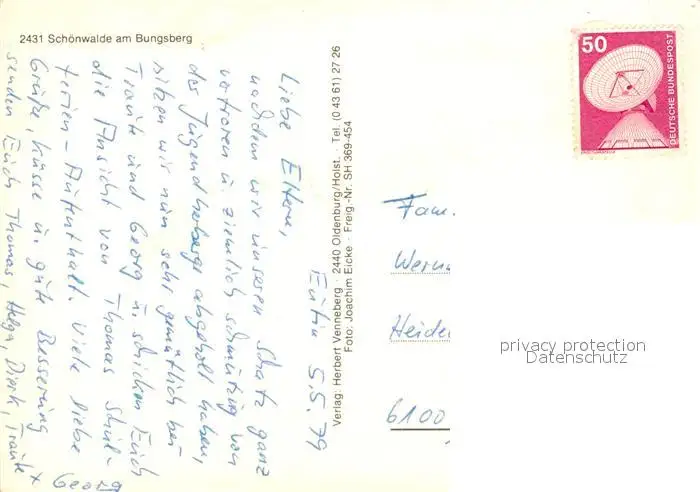 2431 Schönwalde am Bungsberg
Eutin 5.5.79
Liebe Eltern,
nachdem wir unseren Schatz ganz
verfroren u. ziemlich schmutzig von
der Jugendherberge abgeholt haben,
sitzen wir nun sehr gemütlich bei
Traute und Georg u. schicken Euch
die Ansicht von Thomas Schul-
ferien-Aufenthalt. Viele liebe
Grüße, Küsse u. gute Besserung
senden Euch Thomas, Helga, Dierk, Traute +
Georg
Verlag: Herbert Venneberg · 2440 Oldenburg/Holst. · Tel. (0 43 61) 27 26
Foto: Joachim Eicke · Freig.-Nr. SH 369-454
50
DEUTSCHE BUNDESPOST
Fam.
Wern
Heide
6100
privacy protection
Datenschutz